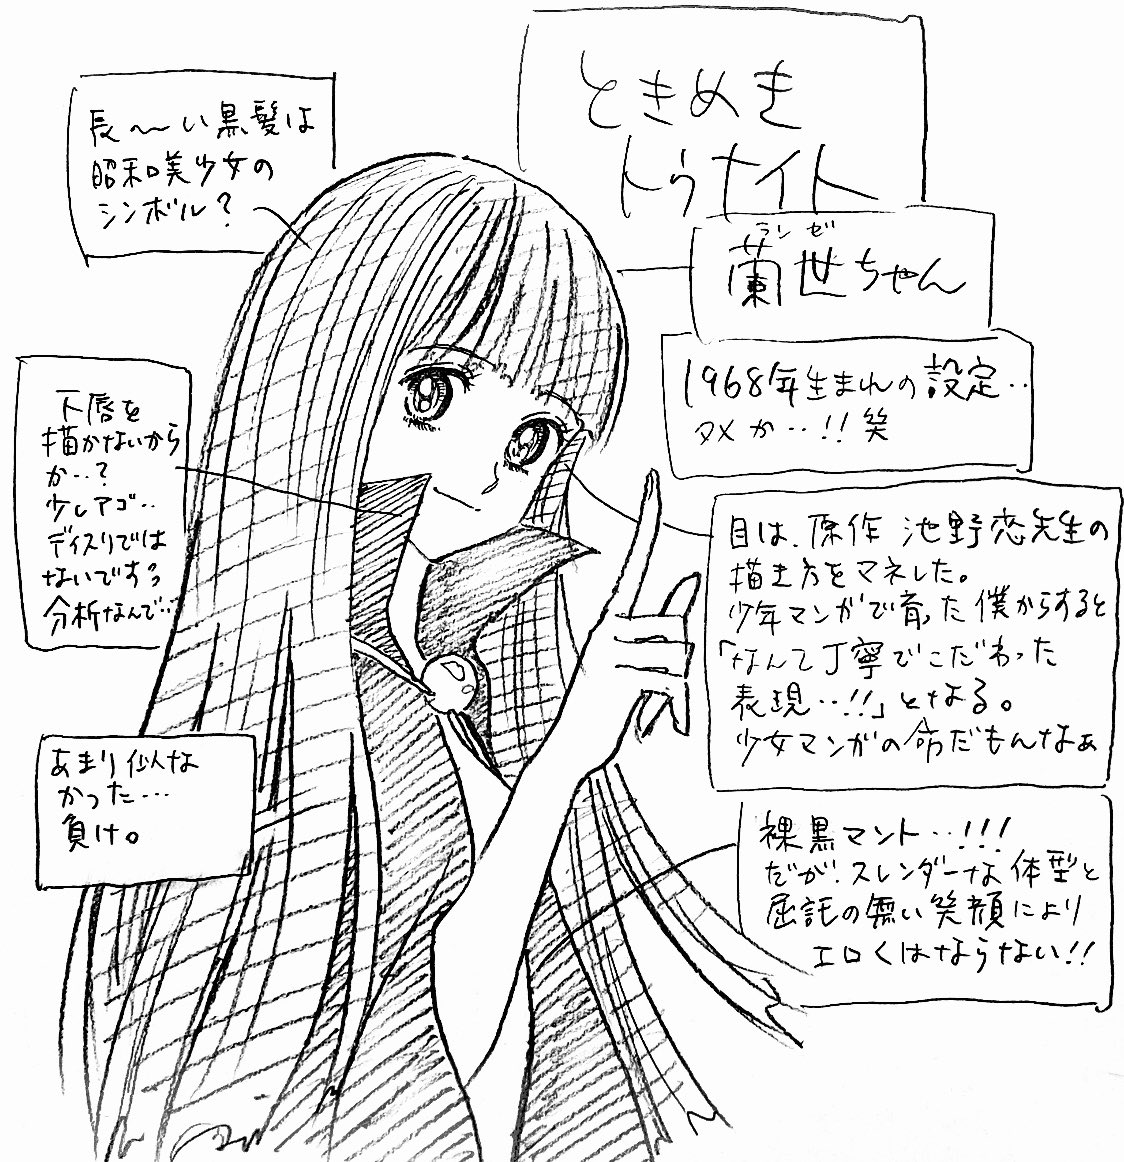 ときめき
トゥナイト
ランゼ
蘭世ちゃん
1968年生まれの設定‥
タメか‥!!笑
長〜い黒髪は
昭和美少女の
シンボル?
下唇を
描かないから
か‥?
少しアゴ‥
ディスりでは
ないですぅ
分析なんで‥
目は、原作 池野恋先生の
描き方をマネした。
少年マンガで育った僕からすると
「なんて丁寧でこだわった
表現‥!!」となる。
少女マンガの命だもんなぁ
あまり似な
かった…
負け。
裸黒マント‥!!!
だが、スレンダーな体型と
屈託の無い笑顔により
エロくはならない!!